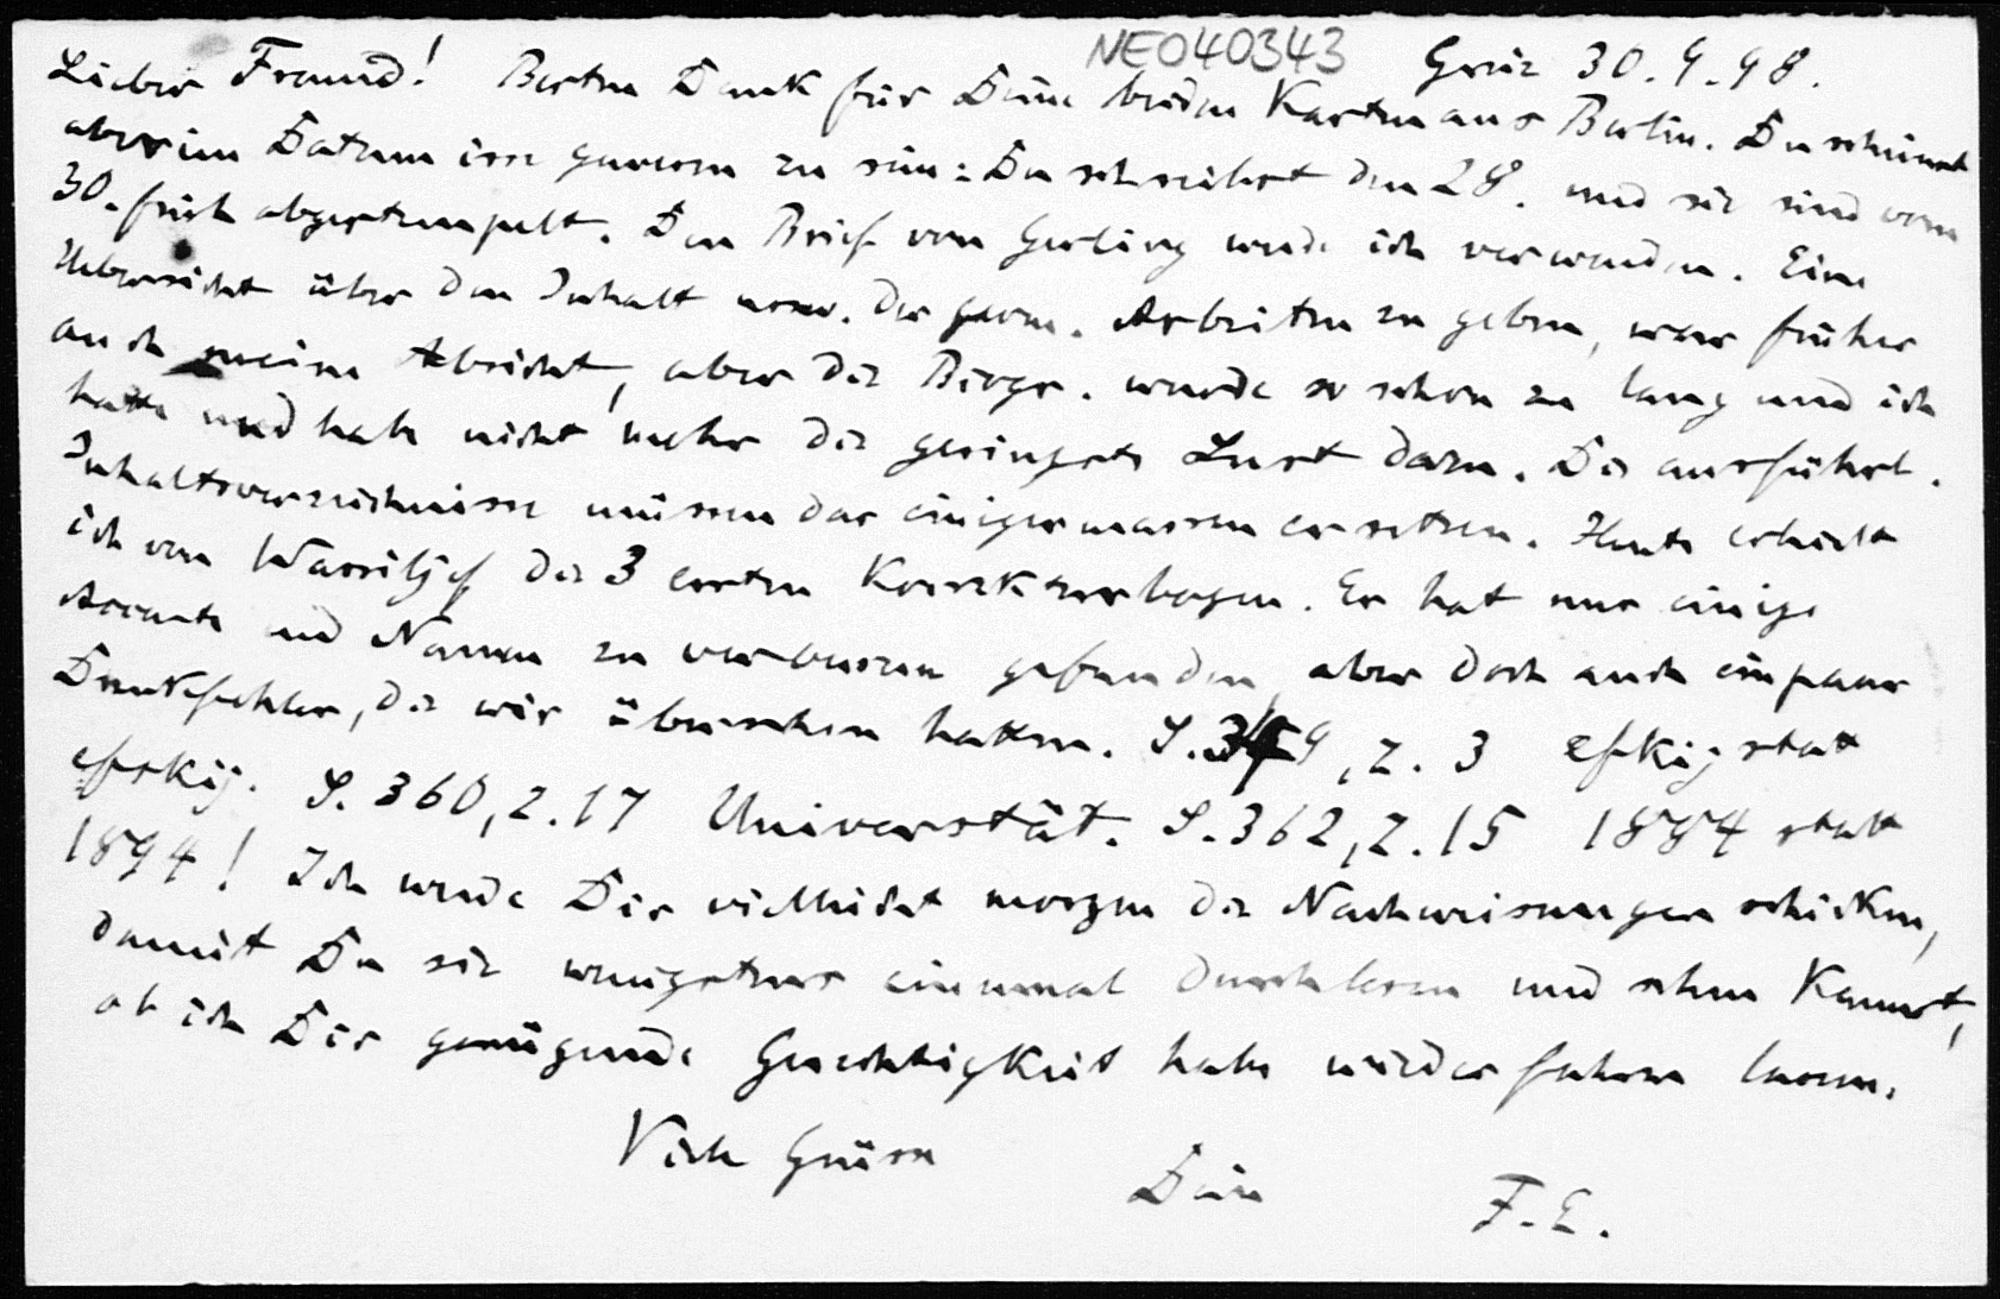 NE040343
Greiz 30.9.98.
Lieber Freund! Besten Dank für Deine beiden Karten aus Berlin. Du scheinst
aber im Datum irre gewesen zu sein: Du schreibst den 28. und sie sind vom
30. früh abgestempelt. Den Brief von Gerling werde ich verwenden. Eine
Uebersicht über den Inhalt usw. der geom. Arbeiten zu geben, war früher
auch meine Absicht, aber die Biogr. wurde so schon zu lang und ich
hatte und habe nicht mehr die geringste Lust dazu. Die ausführl.
Inhaltsverzeichnisse müssen das einigermassen ersetzen. Heute erhielt
ich von Wassiljef die 3 ersten Korrekturbogen. Er hat nur einige
Accente und Namen zu verbessern gefunden, aber doch auch ein paar
Druckfehler, die wir übersehen hatten. S. 359, Z. 3 efkij statt
efskij. S. 360, Z. 17 Universtät. S. 362, Z. 15 1884 statt
1894! Ich werde Dir vielleicht morgen die Nachweisungen schicken,
damit Du sie wenigstens einmal durchlesen und sehen kannst,
ob ich Dir genügende Gerechtigkeit habe wiederfahren lassen.
Viele Grüsse
Dein
F. E.